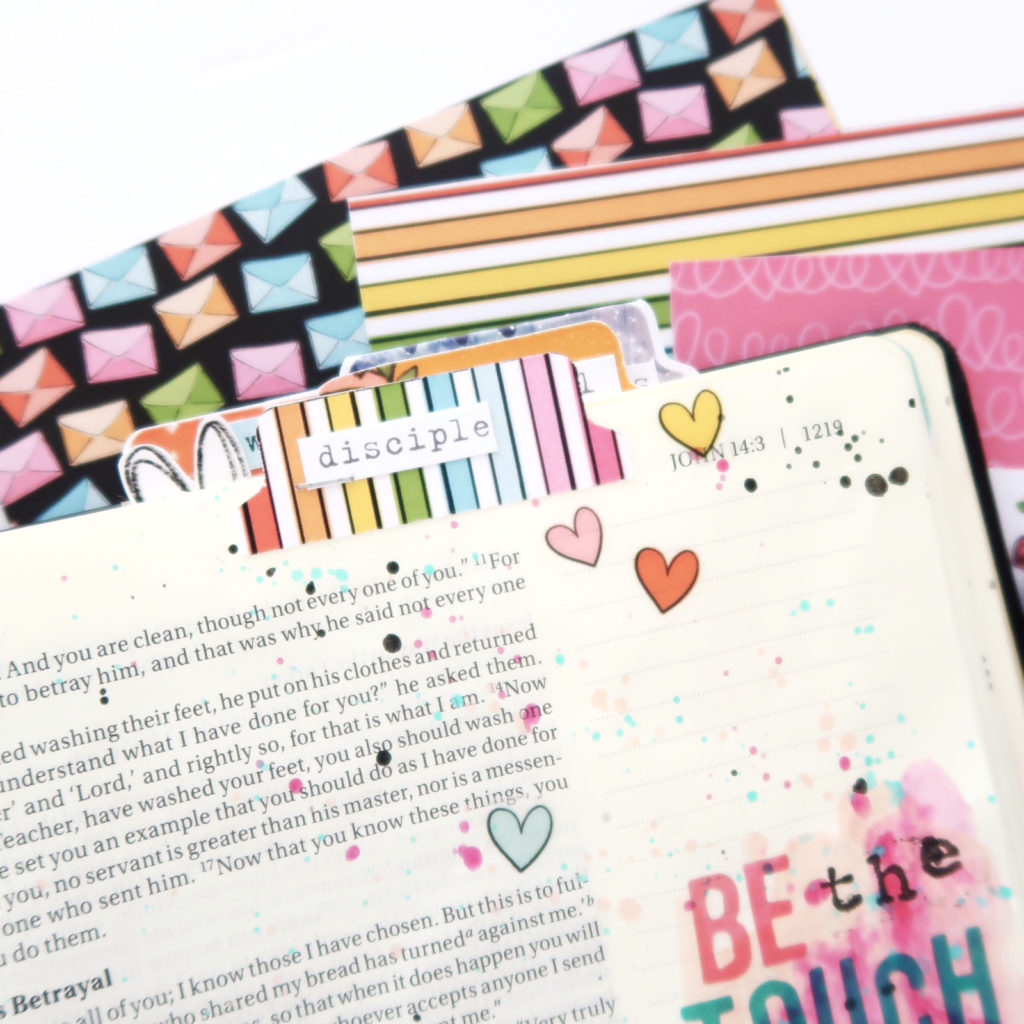 disciple
JOHN 14:3 | 1219
And you are clean, though not every one of you.” ¹¹For
to betray him, and that was why he said not every one
ed washing their feet, he put on his clothes and returned
understand what I have done for you?” he asked them.
er’ and ‘Lord,’ and rightly so, for that is what I am. ¹⁴Now
Teacher, have washed your feet, you also should wash one
e set you an example that you should do as I have done for
you, no servant is greater than his master, nor is a messen-
one who sent him. ¹⁷Now that you know these things, you
u do them.
s Betrayal
all of you; I know those I have chosen. But this is to ful-
who shared my bread has turnedᵃ against me.’ᵇ
so that when it does happen you will
hoever accepts anyone I send
nt me.”
“Very truly
BE the
TOUCH